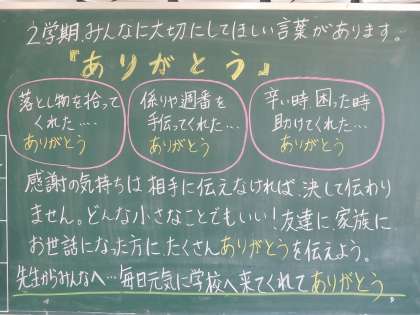 2学期、みんなに大切にしてほしい言葉があります。
『ありがとう』
落とし物を拾って
くれた‥‥
ありがとう
係りや週番を
手伝ってくれた…
ありがとう
辛い時、困った時
助けてくれた…
ありがとう
感謝の気持ちは相手に伝えなければ、決して伝わり
ません。どんな小さなことでもいい!友達に、家族に
お世話になった方に、たくさんありがとうを伝えよう。
先生からみんなへ…毎日元気に学校へ来てくれてありがとう